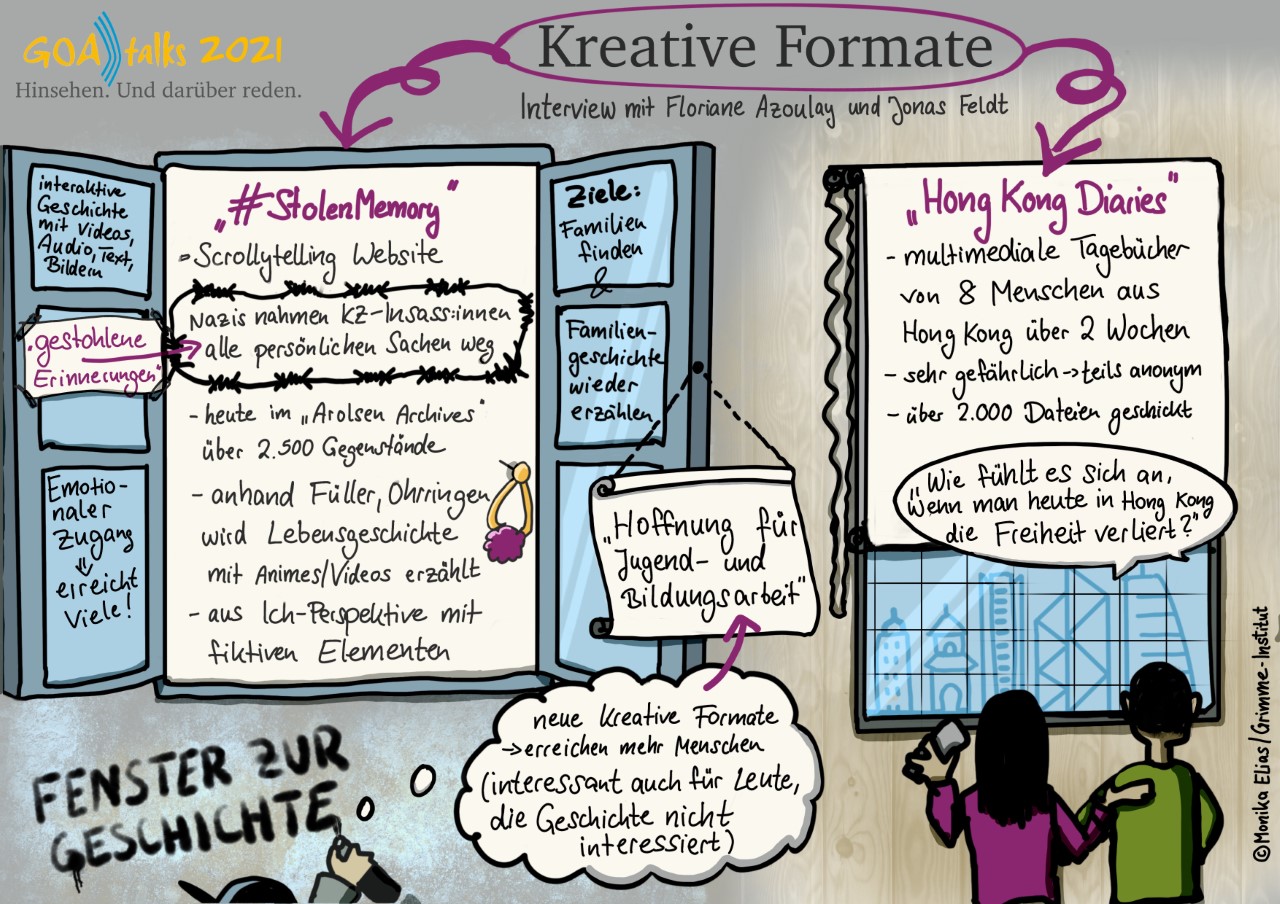 GOA talks 2021
Hinsehen. Und darüber reden.
Kreative Formate
Interview mit Floriane Azoulay und Jonas Feldt
interaktive
Geschichte
mit Videos,
Audio, Text,
Bildern
"gestohlene
Erinnerungen"
Emotio-
naler
Zugang
⇓
erreicht
Viele!
„#StolenMemory"
- Scrollytelling Website
Nazis nahmen KZ-Insass:innen
alle persönlichen Sachen weg
- heute im „Arolsen Archives"
über 2.500 Gegenstände
- anhand Füller, Ohrringen
wird Lebensgeschichte
mit Animes/Videos erzählt
- aus Ich-Perspektive mit
fiktiven Elementen
Ziele:
Familien
finden
&
Familien-
geschichte
wieder
erzählen
„Hoffnung für
Jugend- und
Bildungsarbeit"
neue kreative Formate
→ erreichen mehr Menschen
(interessant auch für Leute,
die Geschichte nicht
interessiert)
FENSTER ZUR
GESCHICHTE
„Hong Kong Diaries"
- multimediale Tagebücher
von 8 Menschen aus
Hong Kong über 2 Wochen
- sehr gefährlich → teils anonym
- über 2.000 Dateien geschickt
„Wie fühlt es sich an,
wenn man heute in Hong Kong
die Freiheit verliert?"
©Monika Elias/Grimme-Institut